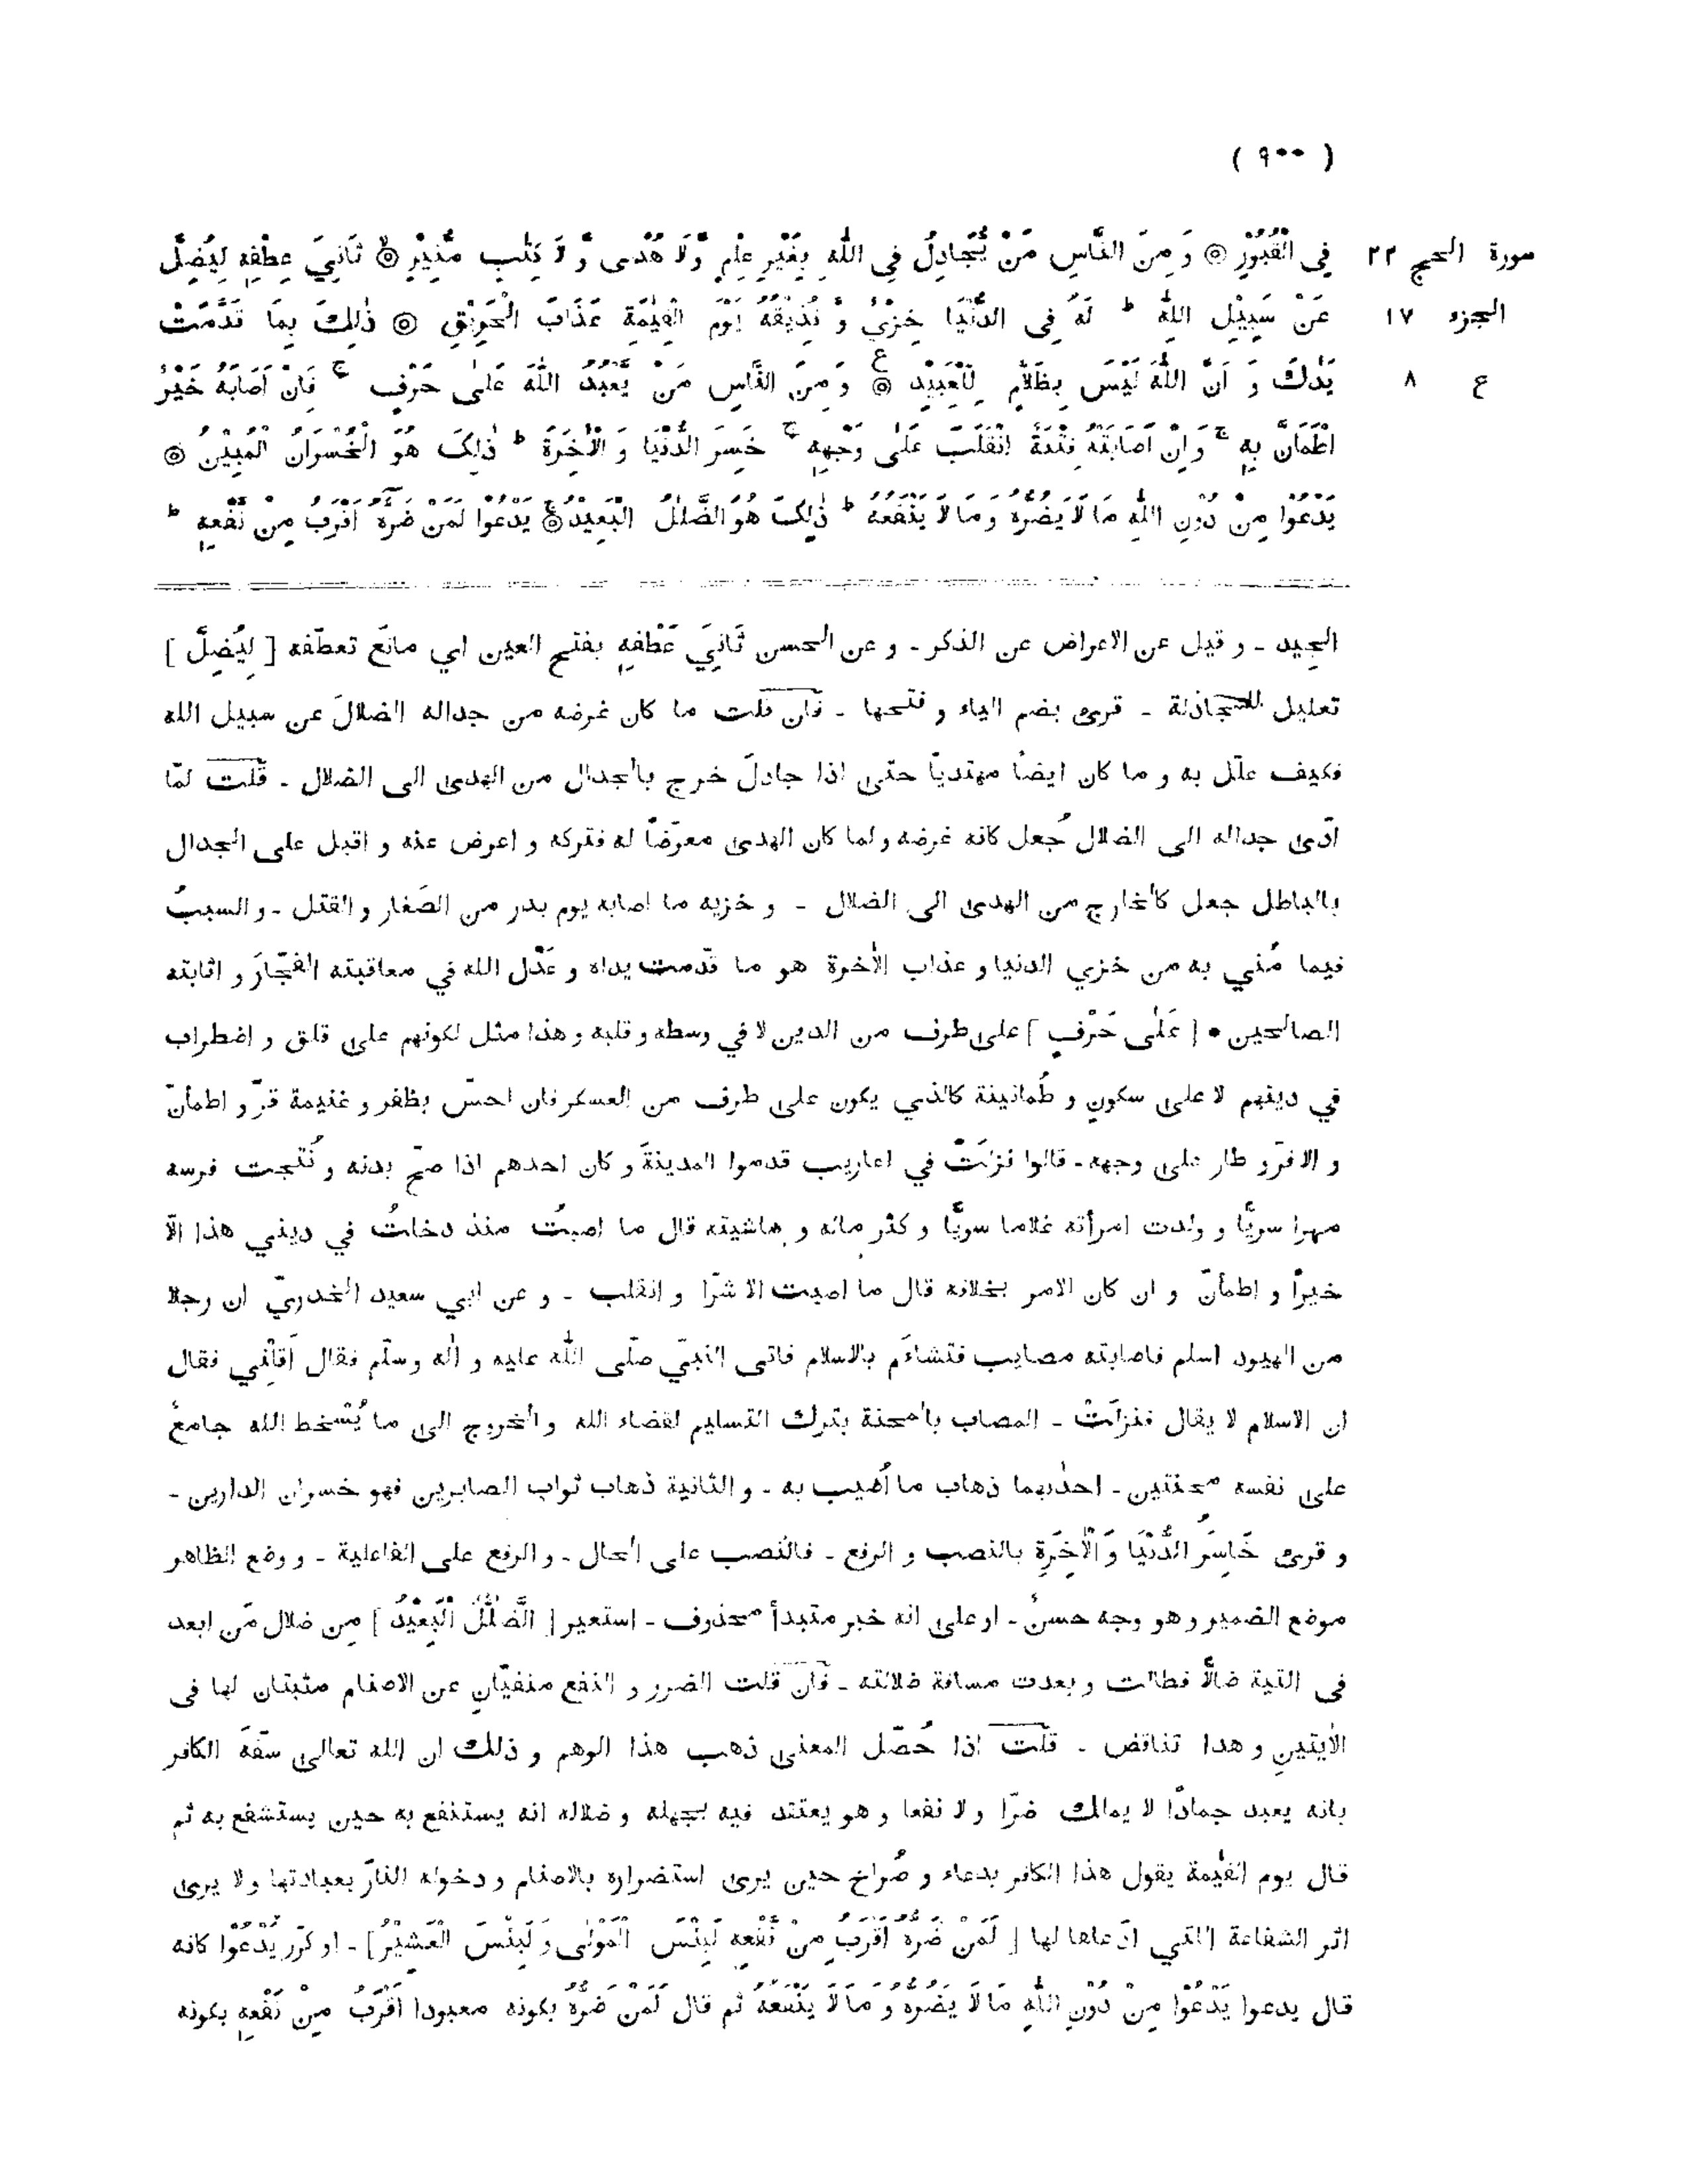 ( ٩٠٠ )
سورة الحج ٢٢
فِى الْقُبُوْرِ ۞ وَ مِنَ النَّاسِ مَنْ يُّجَادِلُ فِى اللّٰهِ بِغَيْرِ عِلْمٍ وَّلَا هُدًى وَّ لَا كِتٰبٍ مُّنِيْرٍ ۙ۞ ثَانِيَ عِطْفِهٖ لِيُضِلَّ
الجزء ١٧
عَنْ سَبِيْلِ اللّٰهِ ؕ لَهٗ فِى الدُّنْيَا خِزْىٌ وَّ نُذِيْقُهٗ يَوْمَ الْقِيٰمَةِ عَذَابَ الْحَرِيْقِ ۞ ذٰلِكَ بِمَا قَدَّمَتْ
ع ٨
يَدٰكَ وَ اَنَّ اللّٰهَ لَيْسَ بِظَلَّامٍ لِّلْعَبِيْدِ ۞ ع وَ مِنَ النَّاسِ مَنْ يَّعْبُدُ اللّٰهَ عَلٰى حَرْفٍ ۚ فَاِنْ اَصَابَهٗ خَيْرُ
اطْمَاَنَّ بِهٖ ۚ وَ اِنْ اَصَابَتْهُ فِتْنَةُ انْقَلَبَ عَلٰى وَجْهِهٖ ۚ خَسِرَ الدُّنْيَا وَ الْاٰخِرَةَ ؕ ذٰلِكَ هُوَ الْخُسْرَانُ الْمُبِيْنُ ۞
يَدْعُوْا مِنْ دُوْنِ اللّٰهِ مَا لَا يَضُرُّهٗ وَ مَا لَا يَنْفَعُهٗ ؕ ذٰلِكَ هُوَ الضَّلٰلُ الْبَعِيْدُ ۞ يَدْعُوا لَمَنْ ضَرُّهٗٓ اَقْرَبُ مِنْ نَّفْعِهٖ ؕ
الجيد - و قيل عن الاعراض عن الذكر - و عن الحسن ثَانِيَ عَطْفِهٖ بفتح العين اي مانع تعطّفه [ لِيُضِلَّ ]
تعليل للمجادلة - قرئ بضم الياء و فتحها - فان قلت ما كان غرضه من جداله الضلالَ عن سبيل الله
فكيف علّل به و ما كان ايضاً مهتدياً حتى اذا جادلَ خرج بالجدال من الهدى الى الضلال - قلت لمّا
ادّى جداله الى الضلال جُعل كانه غرضه و لما كان الهدى معرّضاً له فتركه و اعرض عنه و اقبل على الجدال
بالباطل جعل كالخارج من الهدى الى الضلال - و خزيه ما اصابه يوم بدر من الصَغار و القتل - و السببُ
فيما مُني به من خزي الدنيا و عذاب الاٰخرة هو ما قدّمت يداه و عَدْل الله في معاقبته الفجّارَ و اثابته
الصالحين • [ عَلٰى حَرْفٍ ] على طرف من الدين لا في وسطه و قلبه و هذا مثل لكونهم على قلق و اضطراب
في دينهم لا على سكونٍ و طُمانينة كالذي يكون على طرف من العسكر فان احسّ بظفر و غنيمة قرّ و اطمأنّ
و الا فرّ و طار على وجهه - قالوا نزلتْ في اعاريب قدموا المدينةَ و كان احدهم اذا صحّ بدنه و نُتجت فرسه
مهرا سريًّا و ولدت امرأته غلاما سويًّا و كثر ماله و ماشيته قال ما اصبتُ منذ دخلتُ في ديني هذا الّا
خيراً و اطمأنّ و ان كان الامر بخلافه قال ما اصبت الا شرّا و انقلب - و عن ابي سعيد الخدريّ ان رجلا
من اليهود اسلم فاصابته مصايب فتشاءَم بالاسلام فاتى النبيّ صلّى اللّٰه عليه و اٰله و سلّم فقال اَقلْني فقال
ان الاسلام لا يقال فنزلَتْ - المصاب بالمحنة بترك التسليم لقضاء الله و الخروج الى ما يُسْخط الله جامعٌ
على نفسه محنتين - احدٰىهما ذهاب ما اُصيب به - و الثانية ذهاب ثواب الصابرين فهو خسران الدارين -
و قرئ خَاسِرَ الدُّنْيَا وَ الْاٰخِرَةِ بالنصب و الرفع - فالنصب على الحال - و الرفع على الفاعلية - و وضع الظاهر
موضع الضمير و هو وجه حسنٌ - او على انه خبر مبتدأ محذوف - استعير [ الضَّلٰلُ الْبَعِيْدُ ] من ضلال مَن ابعد
فى التيه ضالًّا فطالت و بعدت مسافة ضلالته - فان قلت الضرر و النفع منفيّانِ عن الاصنام مثبتان لها فى
الاٰيتينِ و هذا تناقض - قلت اذا حُصّل المعنى ذهب هذا الوهم و ذلك ان الله تعالى سفّهَ الكافر
بانه يعبد جمادًا لا يملك ضرّا و لا نفعا و هو يعتقد فيه بجهله و ضلاله انه يستنفع به حين يستشفع به ثم
قال يوم القيٰمة يقول هذا الكافر بدعاء و صُراخ حين يرى استضراره بالاصنام و دخوله النارَ بعبادتها و لا يرى
اثر الشفاعة التي ادّعاها لها [ لَمَنْ ضَرُّهٗٓ اَقْرَبُ مِنْ نَّفْعِهٖ لَبِئْسَ الْمَوْلٰى وَ لَبِئْسَ الْعَشِيْرُ ] - او كرّر يَدْعُوْا كانه
قال يدعوا يَدْعُوْا مِنْ دُوْنِ اللّٰهِ مَا لَا يَضُرُّهٗ وَ مَا لَا يَنْفَعُهٗ ثم قال لَمَنْ ضَرُّهٗ بكونه معبودا اَقْرَبُ مِنْ نَفْعِهٖ بكونه